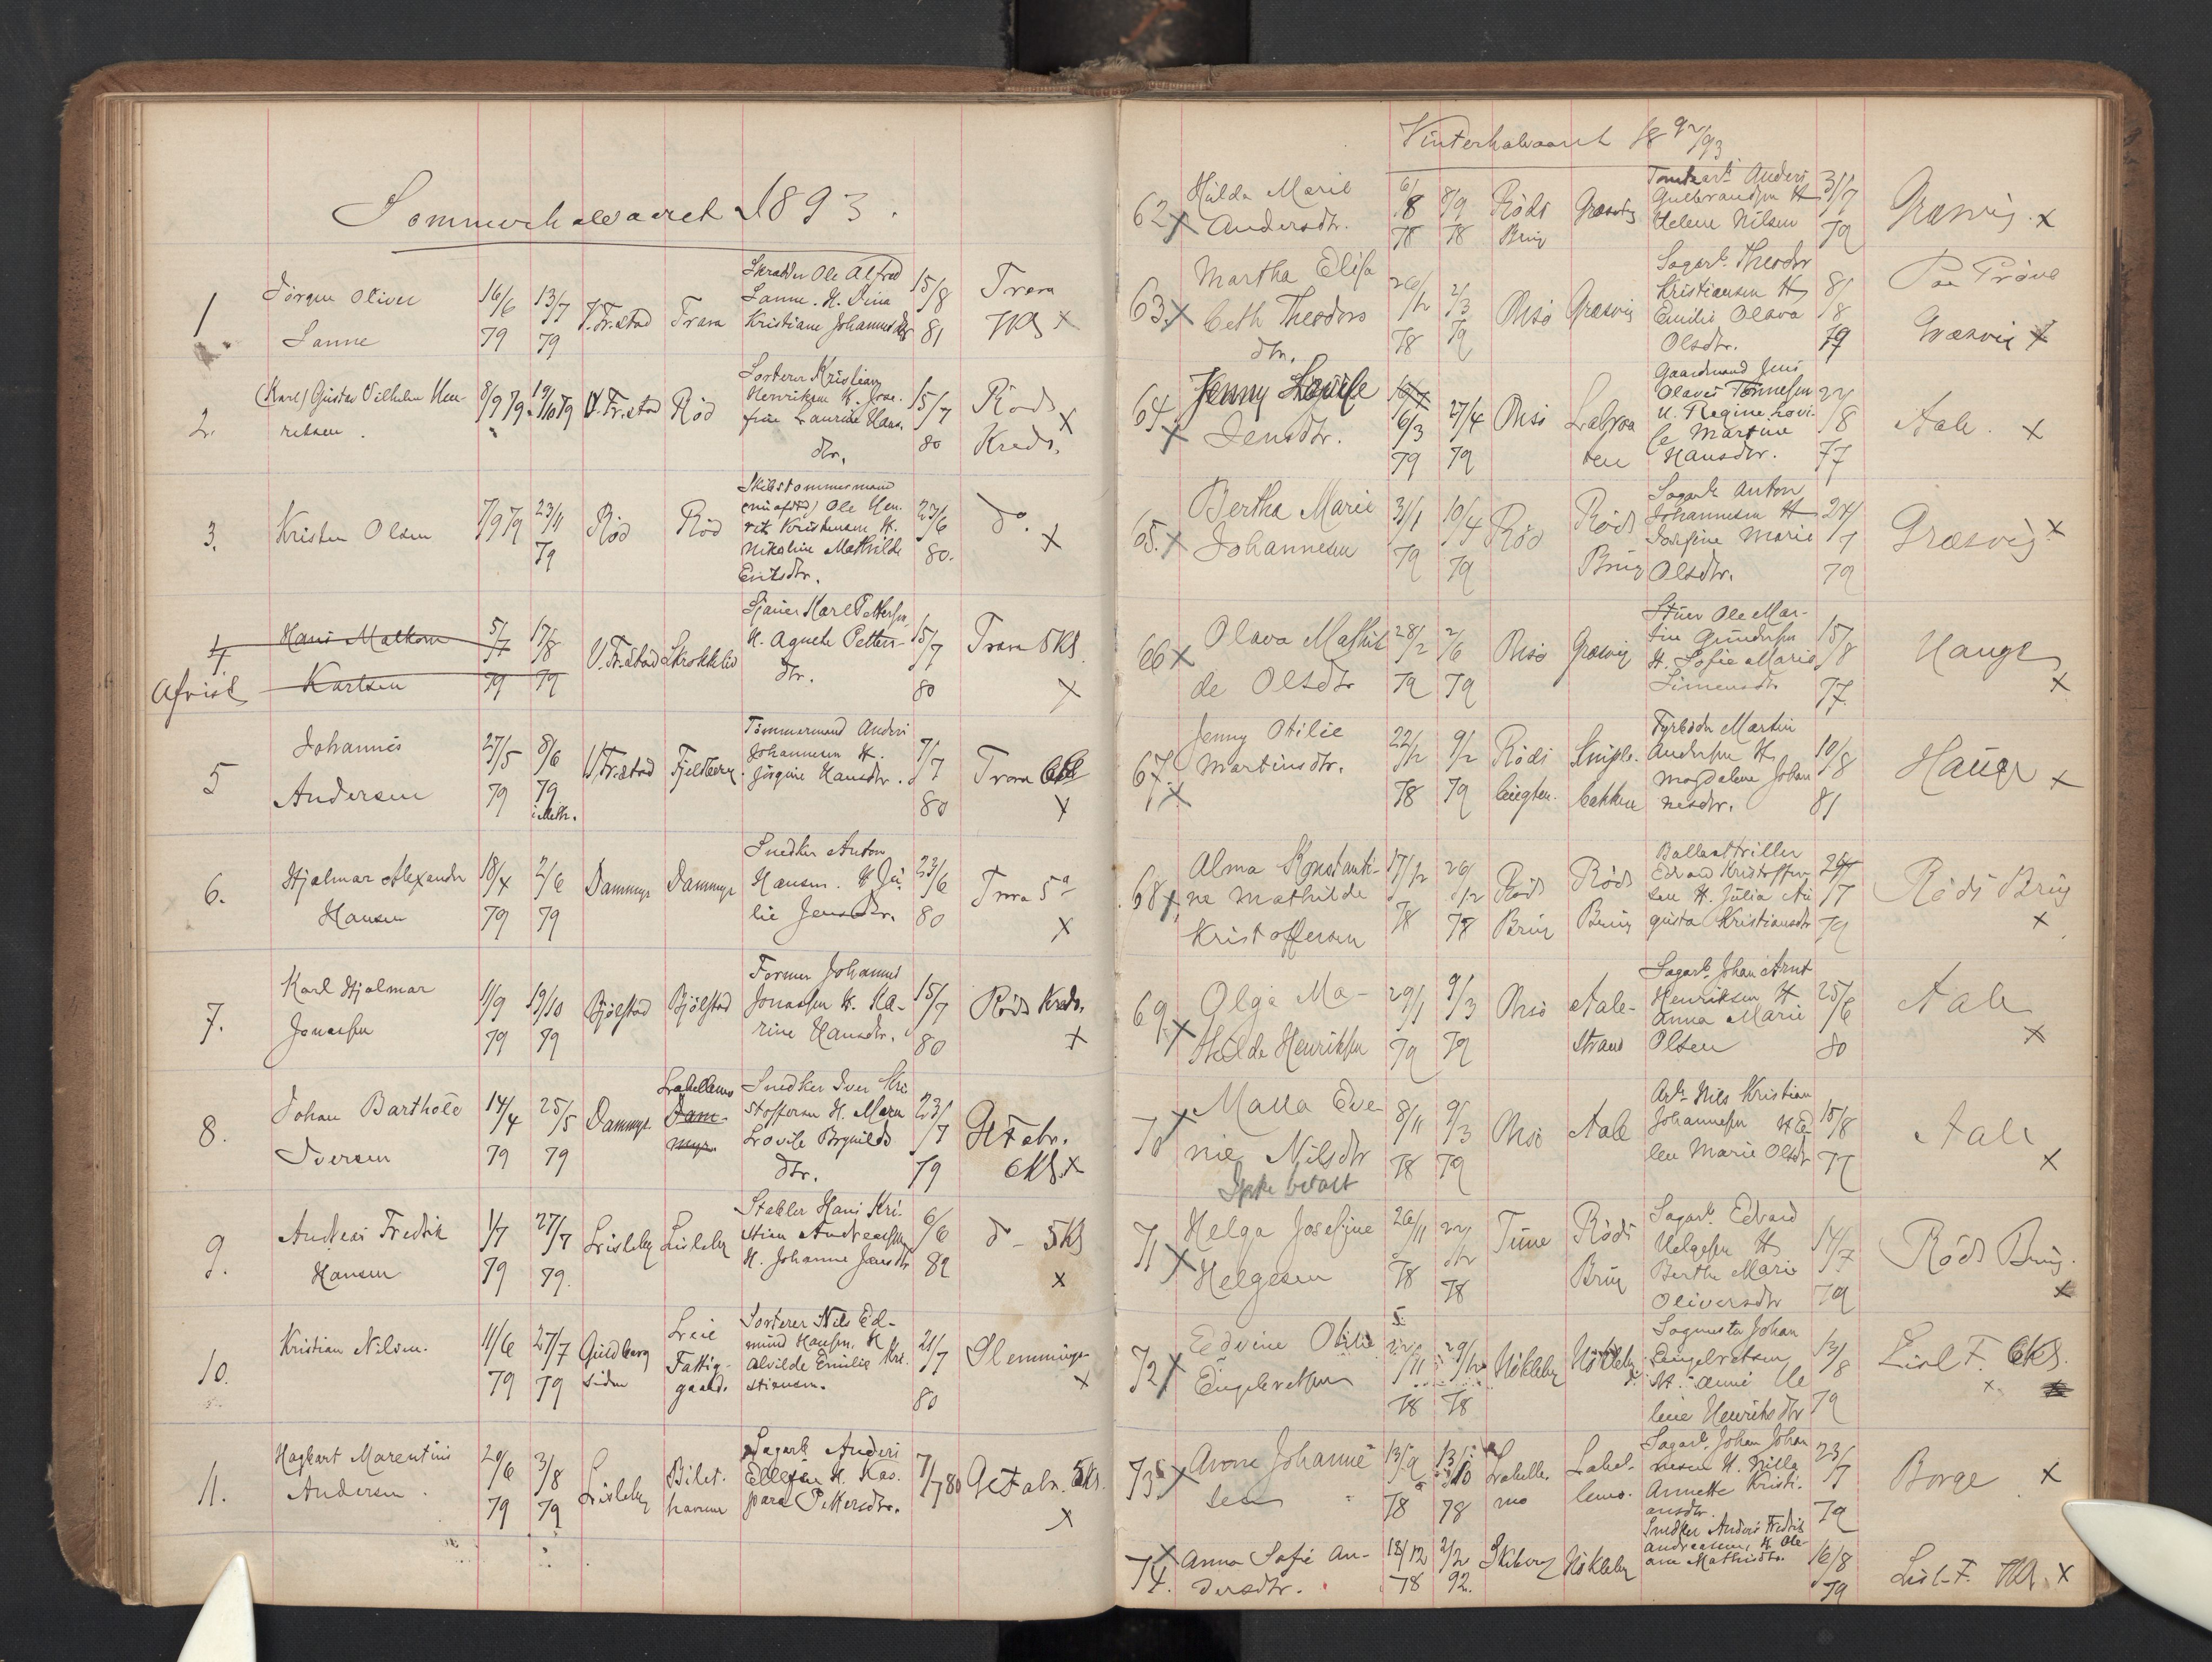 Sommerhalvaaret 1893.
1 Jörgen Oliver Sanne 16/6 79 13/7 79 V. Fr.stad Trara Skrædder Ole Alfred Sanne. H. Dina Kristiane Johannesdtr 15/8 81 Trara 7Kl X
2. (Karl) Gustav Vilhelm Henriksen. 8/9 79 19/10 79 V. Fr.stad Röd Sorterer Kristian Henriksen H. Josefine Laurine Hansdtr. 15/7 80 Röds Kreds. X
3. Kristen Olsen 7/9 79 23/11 79 Röd Röd Skibstømmermand Ole Henrik Kristensen H. Nikoline Mathilde Eritsdtr. 23/6 80. do. X
4. Afvist Hans Malkom Karlsen 5/7 79 17/8 79 V. Fr.stad Skrokklid Sjauer Karl Pettersen, H. Agnete Pettersdtr. 15/7 80 Trara 5Kl X
5 Johannes Andersen 27/5 79 8/6 79 V. Fr.stad Fjeldberg. Tömmermand Anders Johannesen H. Jörgine Hansdtr. 7/7 80 Trara 6Kl X
6. Hjalmar Alexander Hansen 18/4 79 2/6 79 Dammyr Dammyr Snedker Anton Hansen. H Julie Jensdtr. 23/6 80 Trara 5a X
7. Karl Hjalmar Jonassen 11/9 79 19/10 79 Bjölstad Bjölstad Former Johannes Jonassen H. Karine Hansdtr. 15/7 80 Röds Kreds. X
8. Johan Bartholé Iversen 14/4 79 25/5 79 Dammyr. Labellmo Dammyr. Snedker Iver Kristoffersen H. Maren Lovise Brynildsdtr. 23/7 79 Gl Fabr. 6Kl. X
9. Andreas Fredrik Hansen 1/7 79 27/7 79. Lisleby Lisleby Stabler Hans Kristian Andreassen H. Johanne Jensdtr 6/6 82 do 5Kl X
10. Kristian Nilsen. 11/6 79 27/7 79 Gudbergsiden Leie Fattiggaard. Sorterer Nils Edmund Hansen. H Alvilde Emilie Kristiansen. 21/7 80 Glemminge X
11. Hagbart Marentius Andersen. 20/6 79 3/8 79 Lisleby Bilethavnen Sagarb. Anders Ellefsen H. Kaspara Pettersdtr. 7/7 80 Gl Fabr. 5Kl. X
Vinterhalvaaret 1892/93
62 X Hilda Marie Andersdtr. 6/8 78 8/9 78 Röds Brug Græsvig Tomtearb. Anders Gulbrandsen H Helene Nilsen 31/7 79 Græsvig. X
63. X Martha Elisabeth Theodorsdtr. 26/12 78 2/3 79 Onsö Græsvig Sagarb. Theodor Kristiansen H Emilie Olava Olsdtr. 8/8 79 Paa Pröve Græsvig X
64. X Jenny Lovise Jensdtr. 6/3 79 27/4 79 Onsö Gaardmand Jens Olaves Tönnesen H. Regine Lovise Martine Hansdtr. 27/8 77 Aale. X
65. X Bertha Marie Johannesen 31/1 79 10/4 79 Röd Röds Brug Sagarb Anton Johannesen H Josefine Marie Olsdtr. 24/7 79 Græsvig. X
66 X Olava Mathilde Olsdtr 28/2 79 2/6 79 Onsö Græsvig Stuer Ole Martin Gundersen H. Sofie Marie Simensdtr 15/8 77. Hauge X
67. X Jenny Otilie Martinsdtr. 22/12 78 9/2 79 Röds Fyrböder Martin Andersen H. Magdalene Johannesdtr. 10/8 81 Hauge X
68 X Alma Konstantine Mathilde Kristoffersen 17/12 78 26/12 78 Röds Brug Röds Brug Ballasttriller Edvard Kristoffersen H. Julia Augusta Kristiansdtr 29/7 79 Röds Brug X
69 X Olga Mathilde Henriksen 29/1 79 9/3 79 Onsö Aalestrand Sagarb. Johan Arnt Henriksen H Anna Marie Olsen 25/6 80 Aale X
70 X Malla Evenie Nilsdtr 8/11 78 9/3 79 Onsö Aale Arb. Nils Kristian Johannesen H Ellen Marie Olsdtr 15/8 77 Aale X
Ikke betalt
71 X Helga Josefine Helgesen 26/11 78 22/12 78 Tune Röds Brug Sagarb. Edvard Helgesen H Berthe Marie Oliversdtr 14/7 79 Röds Brug. X
72 X Edvine Otilie Engebretsen 22/11 78 29/12 78 Nökleby Nökleby Sagmester Johan Engebretsen H. Anne Helene Henriksdtr 13/8 79 Lisl F. 6Kl. X
73 X Anne Johannesen 13/9 78 13/10 78 Labellemo Labellemo. Sagarb. Johan Johannesen H. Nilla Annette Kristiansdtr. 23/7 79 Borge X
74. X Anna Sofie Andersdtr. 18/12 78 2/2 92. Skiberg Nökleby Snedker Anders Fredrik Andreasen, H. Oleane Mathisdtr. 16/8 79 Lisl-F. 7Kl. X